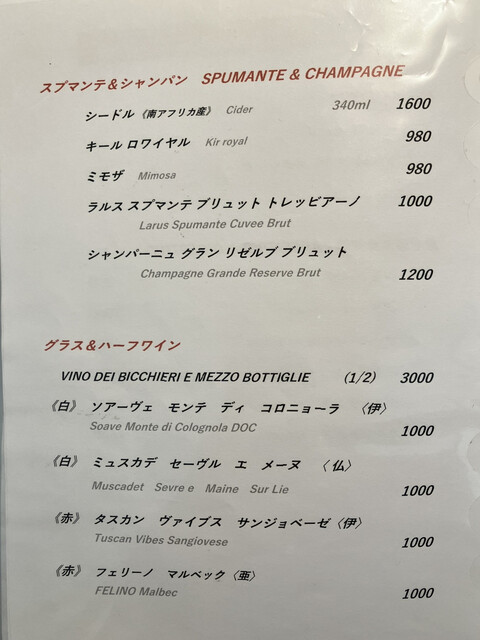 スプマンテ&シャンパン SPUMANTE & CHAMPAGNE
シードル 《南アフリカ産》 Cider 340ml 1600
キール ロワイヤル Kir royal 980
ミモザ Mimosa 980
ラルス スプマンテ ブリュット トレッビアーノ 1000
Larus Spumante Cuvee Brut
シャンパーニュ グラン リゼルブ ブリュット
Champagne Grande Reserve Brut 1200
グラス&ハーフワイン
VINO DEI BICCHIERI E MEZZO BOTTIGLIE (1/2) 3000
《白》 ソアーヴェ モンテ ディ コロニョーラ 〈伊〉
Soave Monte di Colognola DOC 1000
《白》 ミュスカデ セーヴル エ メーヌ 〈仏〉
Muscadet Sevre e Maine Sur Lie 1000
《赤》 タスカン ヴァイブス サンジョベーゼ〈伊〉
Tuscan Vibes Sangiovese 1000
《赤》 フェリーノ マルベック〈亜〉
FELINO Malbec 1000